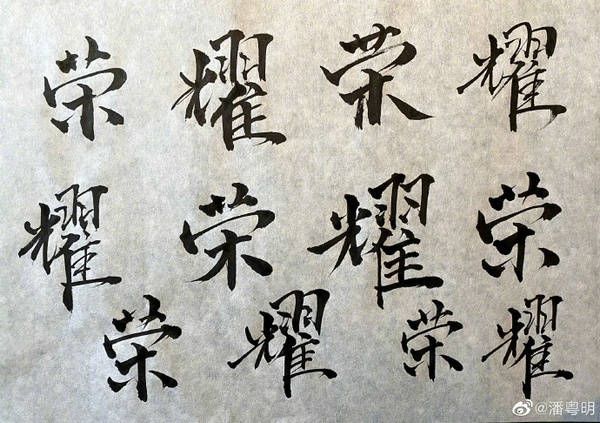 荣耀荣耀
耀荣耀荣
荣耀荣耀
@潘粤明